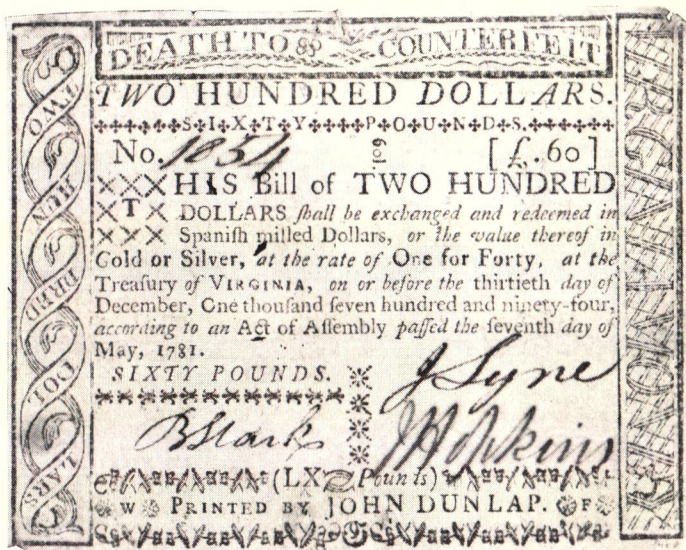 DEATH TO COUNTERFEIT
TWO HUNDRED DOLLARS.
SIXTY POUNDS.
No. 1854 [£.60]
THIS Bill of TWO HUNDRED
DOLLARS ſhall be exchanged and redeemed in
Spaniſh milled Dollars, or the value thereof in
Gold or Silver, at the rate of One for Forty, at the
Treaſury of VIRGINIA, on or before the thirtieth day of
December, One thouſand ſeven hundred and ninety-four,
according to an Act of Aſſembly paſſed the ſeventh day of
May, 1781.
SIXTY POUNDS.
J Lyne
B Stark
J Hopkins
(LX Pounds)
W PRINTED BY JOHN DUNLAP. F
TWO HUN DRED DOL LARS